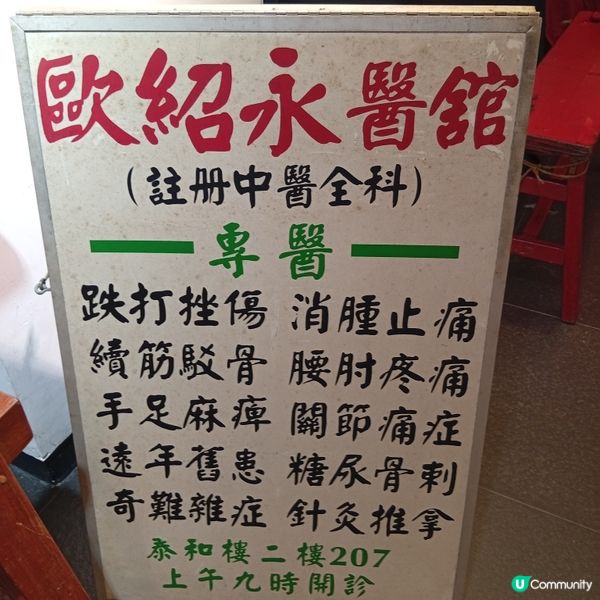 歐紹永醫舘
(註册中醫全科)
專醫
跌打挫傷 消腫止痛
續筋駁骨 腰肘疼痛
手足麻痺 關節痛症
遠年舊患 糖尿骨刺
奇難雜症 針灸推拿
泰和樓二樓207
上午九時開診
U Community